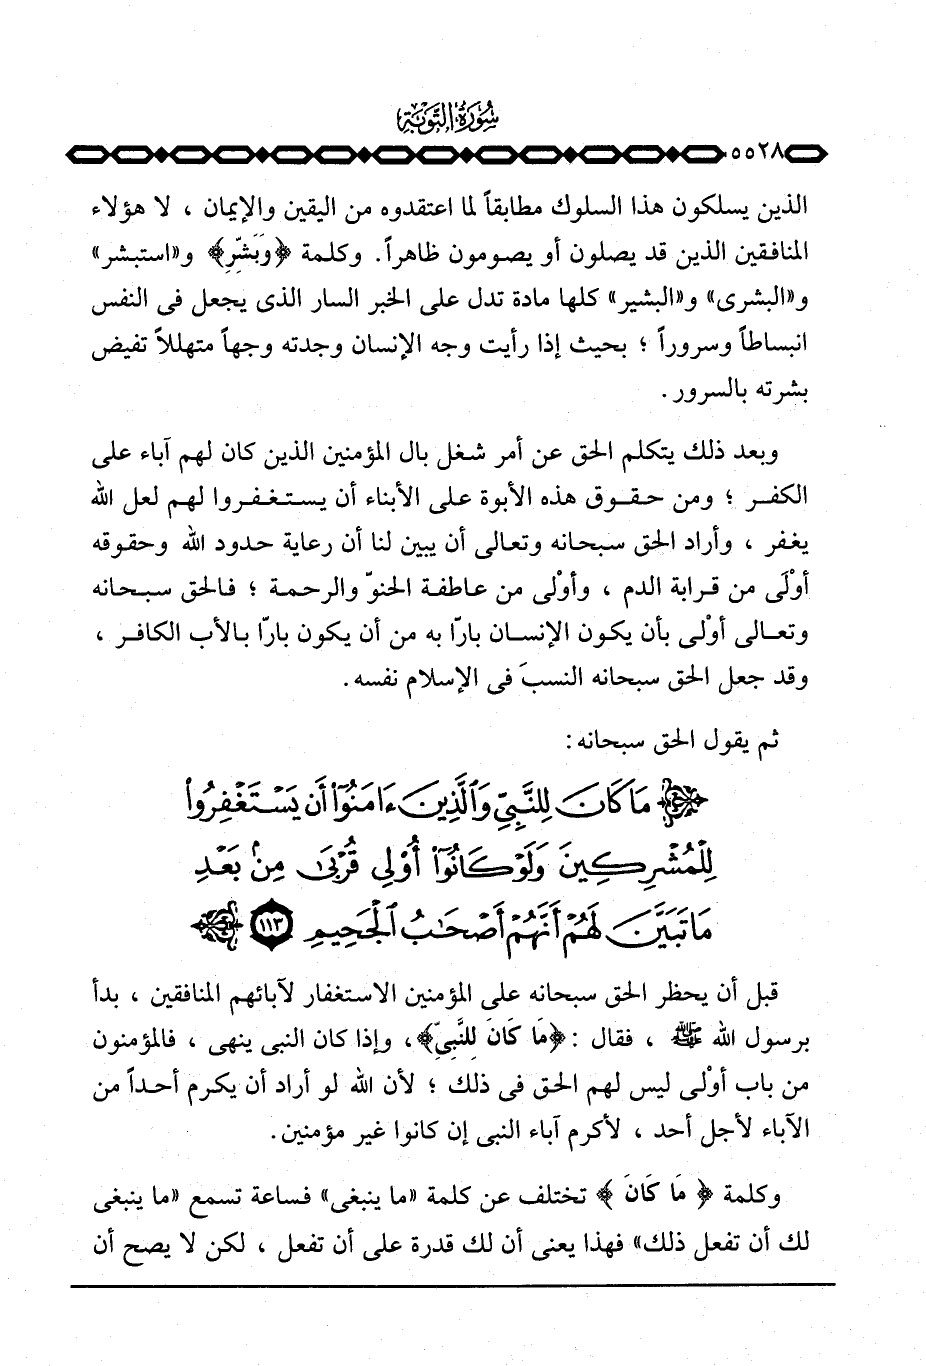 سُورَةُ التَّوْبَةِ
٥٥٢٨
الذين يسلكون هذا السلوك مطابقاً لما اعتقدوه من اليقين والإيمان ، لا هؤلاء
المنافقين الذين قد يصلون أو يصومون ظاهراً. وكلمة ﴿وَبَشِّرِ﴾ و«استبشر»
و«البشرى» و«البشير» كلها مادة تدل على الخبر السار الذى يجعل فى النفس
انبساطاً وسروراً ؛ بحيث إذا رأيت وجه الإنسان وجدته وجهاً متهللاً تفيض
بشرته بالسرور .
وبعد ذلك يتكلم الحق عن أمر شغل بال المؤمنين الذين كان لهم آباء على
الكفر ؛ ومن حقوق هذه الأبوة على الأبناء أن يستغفروا لهم لعل الله
يغفر ، وأراد الحق سبحانه وتعالى أن يبين لنا أن رعاية حدود الله وحقوقه
أوْلَى من قرابة الدم ، وأوْلى من عاطفة الحنوّ والرحمة ؛ فالحق سبحانه
وتعالى أوْلى بأن يكون الإنسان بارّا به من أن يكون بارّا بالأب الكافر ،
وقد جعل الحق سبحانه النسبَ فى الإسلام نفسه .
ثم يقول الحق سبحانه :
مَا كَانَ لِلنَّبِيِّ وَٱلَّذِينَ ءَامَنُوٓا۟ أَن يَسْتَغْفِرُوا۟
لِلْمُشْرِكِينَ وَلَوْ كَانُوٓا۟ أُو۟لِى قُرْبَىٰ مِنۢ بَعْدِ
مَا تَبَيَّنَ لَهُمْ أَنَّهُمْ أَصْحَٰبُ ٱلْجَحِيمِ ١١٣
قبل أن يحظر الحق سبحانه على المؤمنين الاستغفار لآبائهم المنافقين ، بدأ
برسول الله ﷺ ، فقال : ﴿مَا كَانَ لِلنَّبِيِّ﴾، وإذا كان النبى ينهى ، فالمؤمنون
من باب أوْلى ليس لهم الحق فى ذلك ؛ لأن الله لو أراد أن يكرم أحداً من
الآباء لأجل أحد ، لأكرم آباء النبى إن كانوا غير مؤمنين .
وكلمة ﴿ مَا كَانَ ﴾ تختلف عن كلمة «ما ينبغى» فساعة تسمع «ما ينبغى
لك أن تفعل ذلك» فهذا يعنى أن لك قدرة على أن تفعل ، لكن لا يصح أن